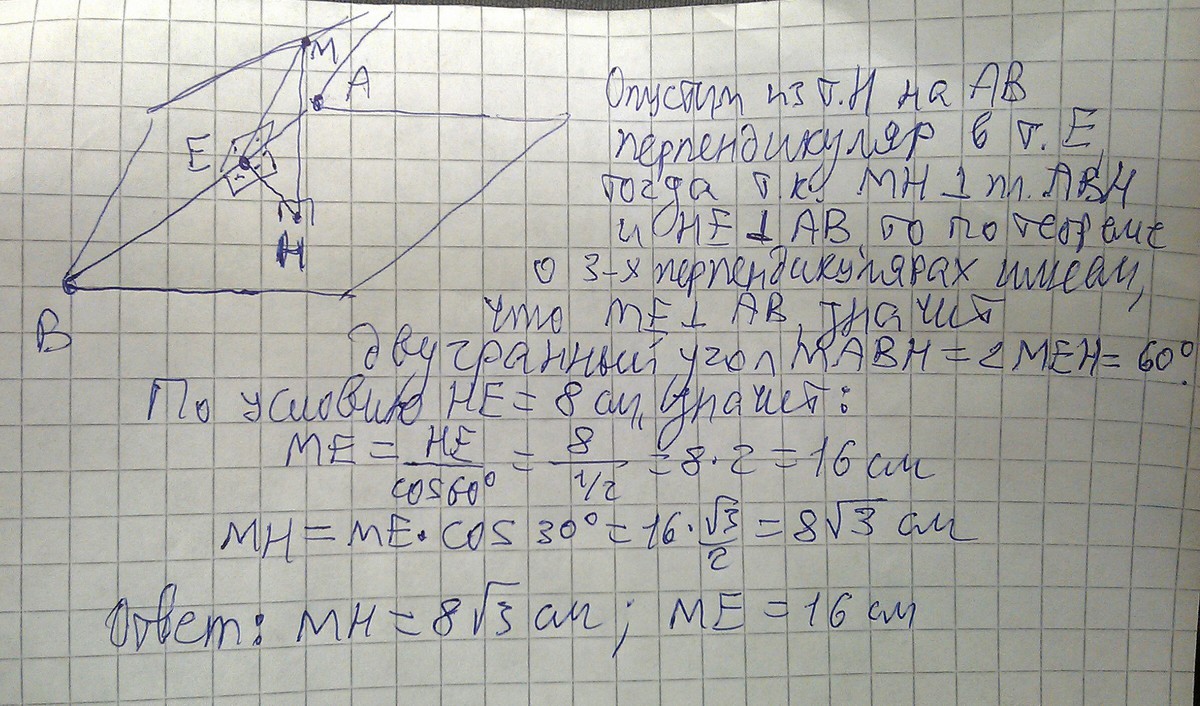 М
А
Е
Н
В
Опустим из т. Н на АВ
перпендикуляр в т. Е,
тогда т.к. МН ⊥ пл. АВН
и НЕ ⊥ АВ, то по теореме
о 3-х перпендикулярах имеем,
что МЕ ⊥ АВ, значит
двугранный угол МАВН = ∠МЕН = 60°.
По условию НЕ = 8 см, значит:
МЕ = НЕ/cos60° = 8/1/2 = 8·2 = 16 см
МН = МЕ·cos 30° = 16·√3/2 = 8√3 см
Ответ: МН = 8√3 см; МЕ = 16 см